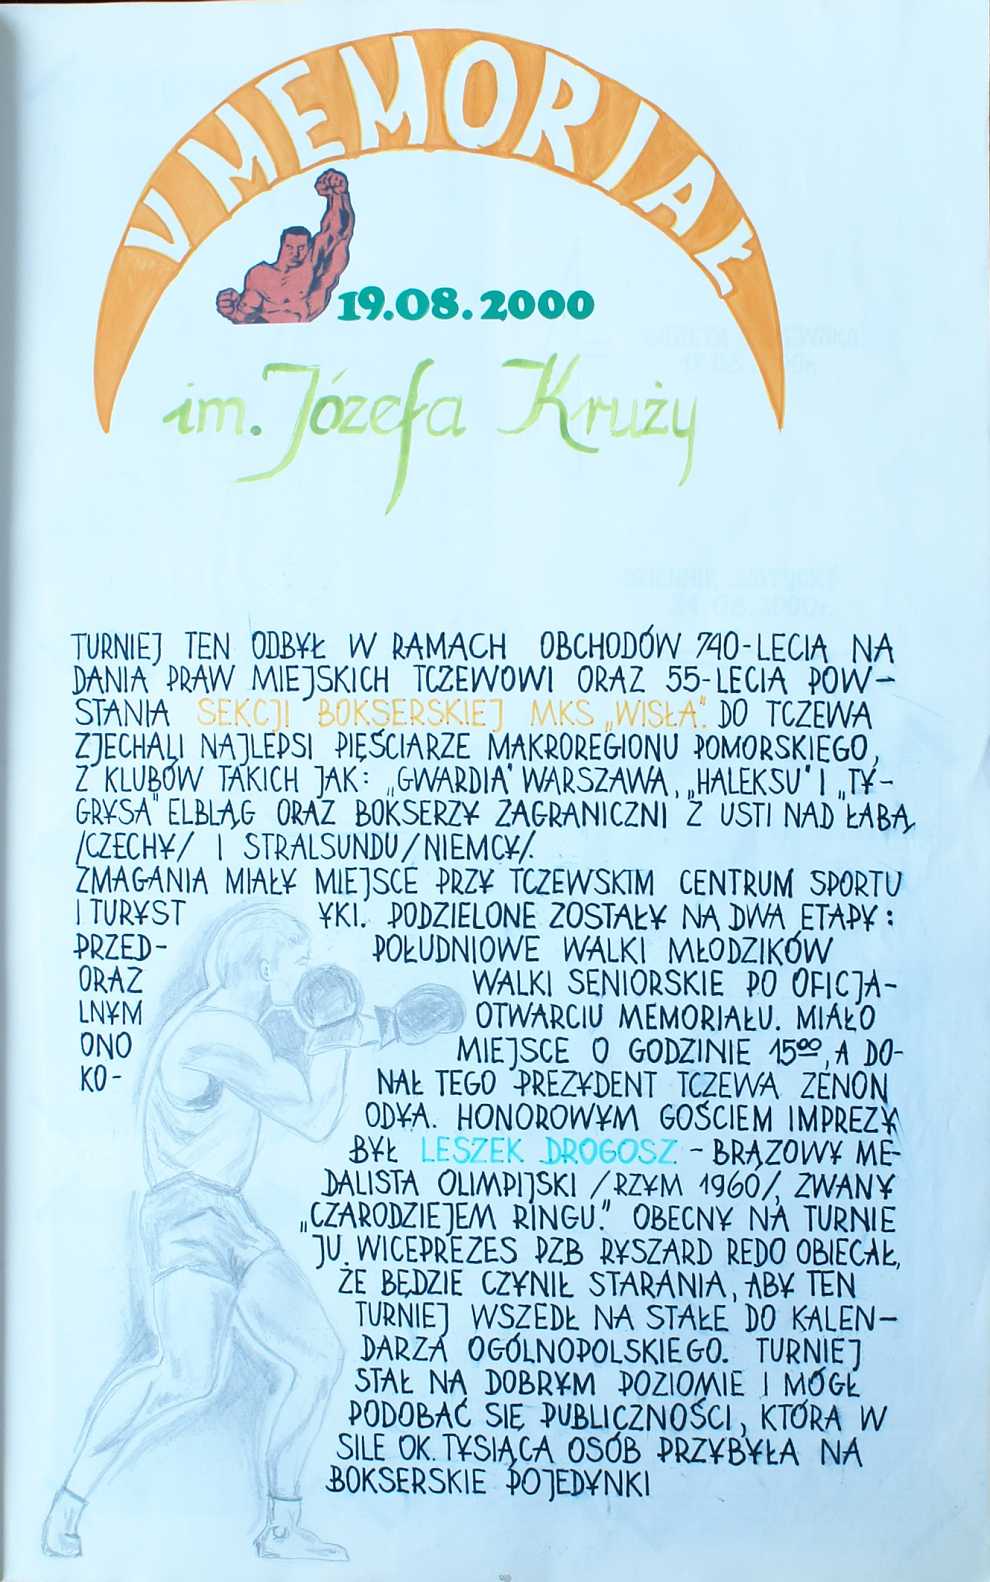 V MEMORIAŁ
19.08.2000
im. Józefa Kruży
TURNIEJ TEN ODBYŁ W RAMACH OBCHODÓW 740-LECIA NA
DANIA PRAW MIEJSKICH TCZEWOWI ORAZ 55-LECIA POW-
STANIA SEKCJI BOKSERSKIEJ MKS „WISŁA". DO TCZEWA
ZJECHALI NAJLEPSI PIĘŚCIARZE MAKROREGIONU POMORSKIEGO,
Z KLUBÓW TAKICH JAK: „GWARDIA" WARSZAWA, „HALEKSU" I „TY-
GRYSA" ELBLĄG ORAZ BOKSERZY ZAGRANICZNI Z USTI NAD ŁABĄ
/CZECHY/ I STRALSUNDU/NIEMCY/.
ZMAGANIA MIAŁY MIEJSCE PRZY TCZEWSKIM CENTRUM SPORTU
I TURYST YKI. PODZIELONE ZOSTAŁY NA DWA ETAPY:
PRZED- POŁUDNIOWE WALKI MŁODZIKÓW
ORAZ WALKI SENIORSKIE PO OFICJA-
LNYM OTWARCIU MEMORIAŁU. MIAŁO
ONO MIEJSCE O GODZINIE 15⁰⁰, A DO-
KO- NAŁ TEGO PREZYDENT TCZEWA ZENON
ODYA. HONOROWYM GOŚCIEM IMPREZY
BYŁ LESZEK DROGOSZ - BRĄZOWY ME-
DALISTA OLIMPIJSKI /RZYM 1960/, ZWANY
„CZARODZIEJEM RINGU." OBECNY NA TURNIE
JU WICEPREZES PZB RYSZARD REDO OBIECAŁ,
ŻE BĘDZIE CZYNIŁ STARANIA, ABY TEN
TURNIEJ WSZEDŁ NA STAŁE DO KALEN-
DARZA OGÓLNOPOLSKIEGO. TURNIEJ
STAŁ NA DOBRYM POZIOMIE I MÓGŁ
PODOBAĆ SIĘ PUBLICZNOŚCI, KTÓRA W
SILE OK. TYSIĄCA OSÓB PRZYBYŁA NA
BOKSERSKIE POJEDYNKI